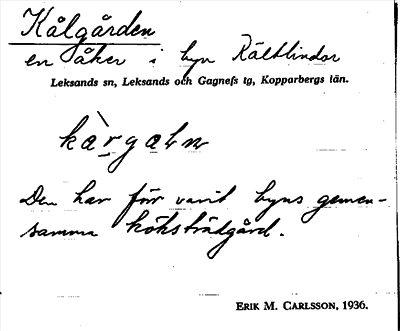 Kålgården
en åker i byn Rältlindor
Leksands sn, Leksands och Gagnefs tg, Kopparbergs län.
kàrgaln
Den har för varit byns gemen-
samma köksträdgård.
ERIK M. CARLSSON, 1936.